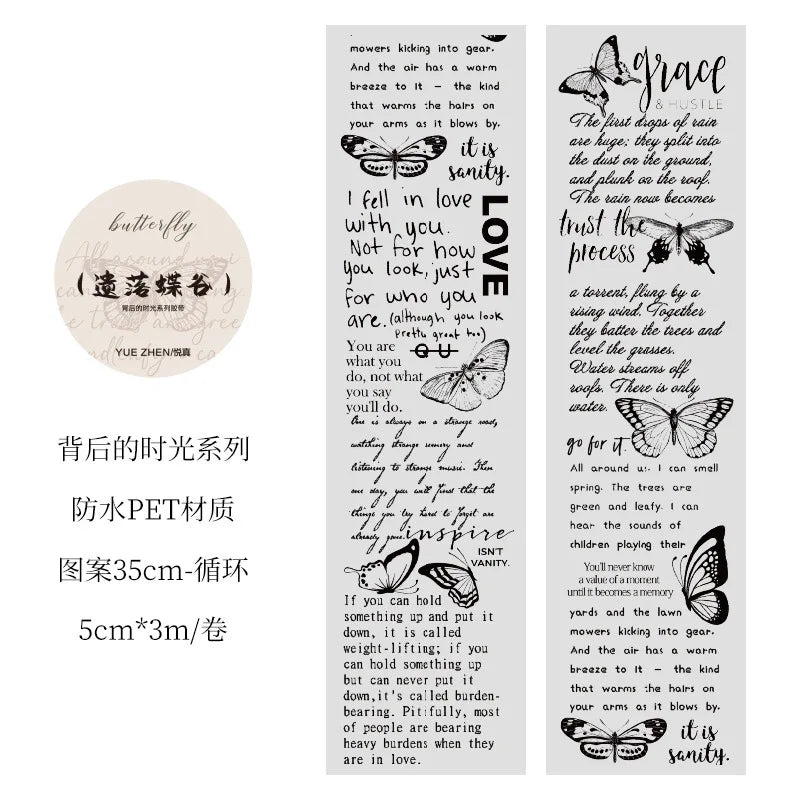 butterfly
(遗落蝶谷)
背后的时光系列胶带
YUE ZHEN/悦真
背后的时光系列
防水PET材质
图案35cm-循环
5cm*3m/卷
mowers kicking into gear.
And the air has a warm
breeze to it — the kind
that warms the hairs on
your arms as it blows by.
it is
sanity.
I fell in love
with you.
Not for how
you look, just
for who you
are. (although you look
pretty great too)
LOVE
You are
what you
do, not what
you say
you'll do.
QU
One is always on a strange road,
watching strange scenery and
listening to strange music. Then
one day, you will find that the
things you try hard to forget are
already gone.
inspire
ISN'T
VANITY.
If you can hold
something up and put it
down, it is called
weight-lifting; if you
can hold something up
but can never put it
down,it's called burden-
bearing. Pitifully, most
of people are bearing
heavy burdens when they
are in love.
grace
& HUSTLE
The first drops of rain
are huge; they split into
the dust on the ground,
and plunk on the roof.
The rain now becomes
trust the
process
a torrent, flung by a
rising wind. Together
they batter the trees and
level the grasses.
Water streams off
roofs. There is only
water.
go for it.
All around us. I can smell
spring. The trees are
green and leafy. I can
hear the sounds of
children playing their
You'll never know
a value of a moment
until it becomes a memory
yards and the lawn
mowers kicking into gear.
And the air has a warm
breeze to it — the kind
that warms the hairs on
your arms as it blows by.
it is
sanity.